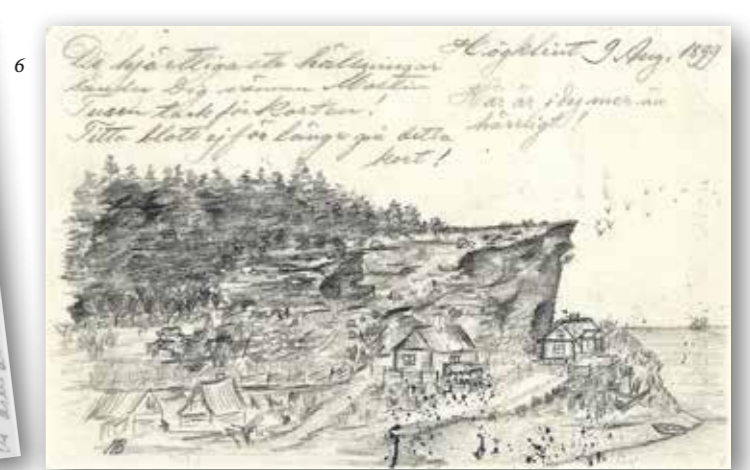 6
De hjärtligaste hälsningar
sänder Dig vännen Martin
Tusen tack för korten!
Titta blott ej för länge på detta
kort!
Högklint 9 Aug. 1899
Här är i dag mer än
härligt!